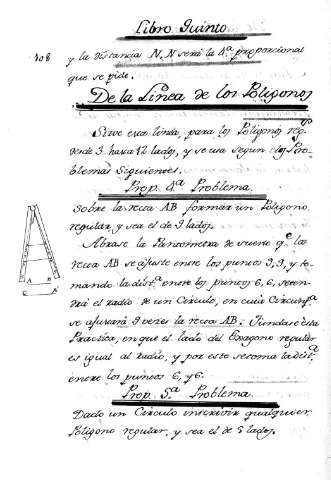 Libro Quinto
108
y la distancia N, N será la 4.ª proporcional
que se pide.
De la Linea de los Poligonos
Sirve esta linea, para los Poligonos reg.s
desde 3. hasta 12 lados, y se usa segun los Pro-
blemas siguientes.
Prop. 4.ª Problema
Sobre la recta AB formar un Poligono
regular, y sea el de 9 lados.
Abrase la Pantometra de suerte q.e la
recta AB se ajuste entre los puntos 9, 9, y to-
mando la dist.ª entre los puntos 6, 6, seten-
drá el radio de un Circulo, en cuia Circunf.ª
se ajustará 9 vezes la recta AB. Fundase esta
Practica, en que el lado del Exagono regular
es igual al radio, y por esto setoma la dist.ª
entre los puntos 6, y 6.
Prop. 5.ª Problema
Dado un Circulo inscrivir qualquier
Poligono regular, y sea el de 5 lados.
A B
A B